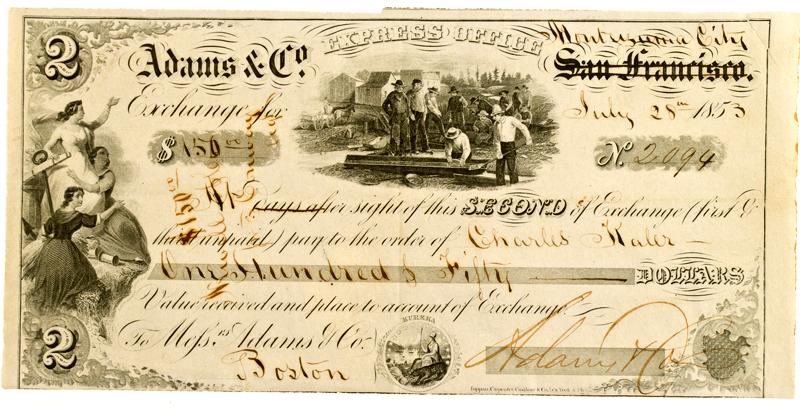 2
Adams & Co.
EXPRESS OFFICE
Montezuma City
San Francisco.
Exchange for
July 28th 1853
$ 150 00
No. 2094
At days after sight of this SECOND of Exchange (first &
third unpaid) pay to the order of Charles Kaler
One Hundred & Fifty DOLLARS
Value received and place to account of Exchange
To Messrs. Adams & Co.
Boston
EUREKA
Adams & Co
2
$150 00